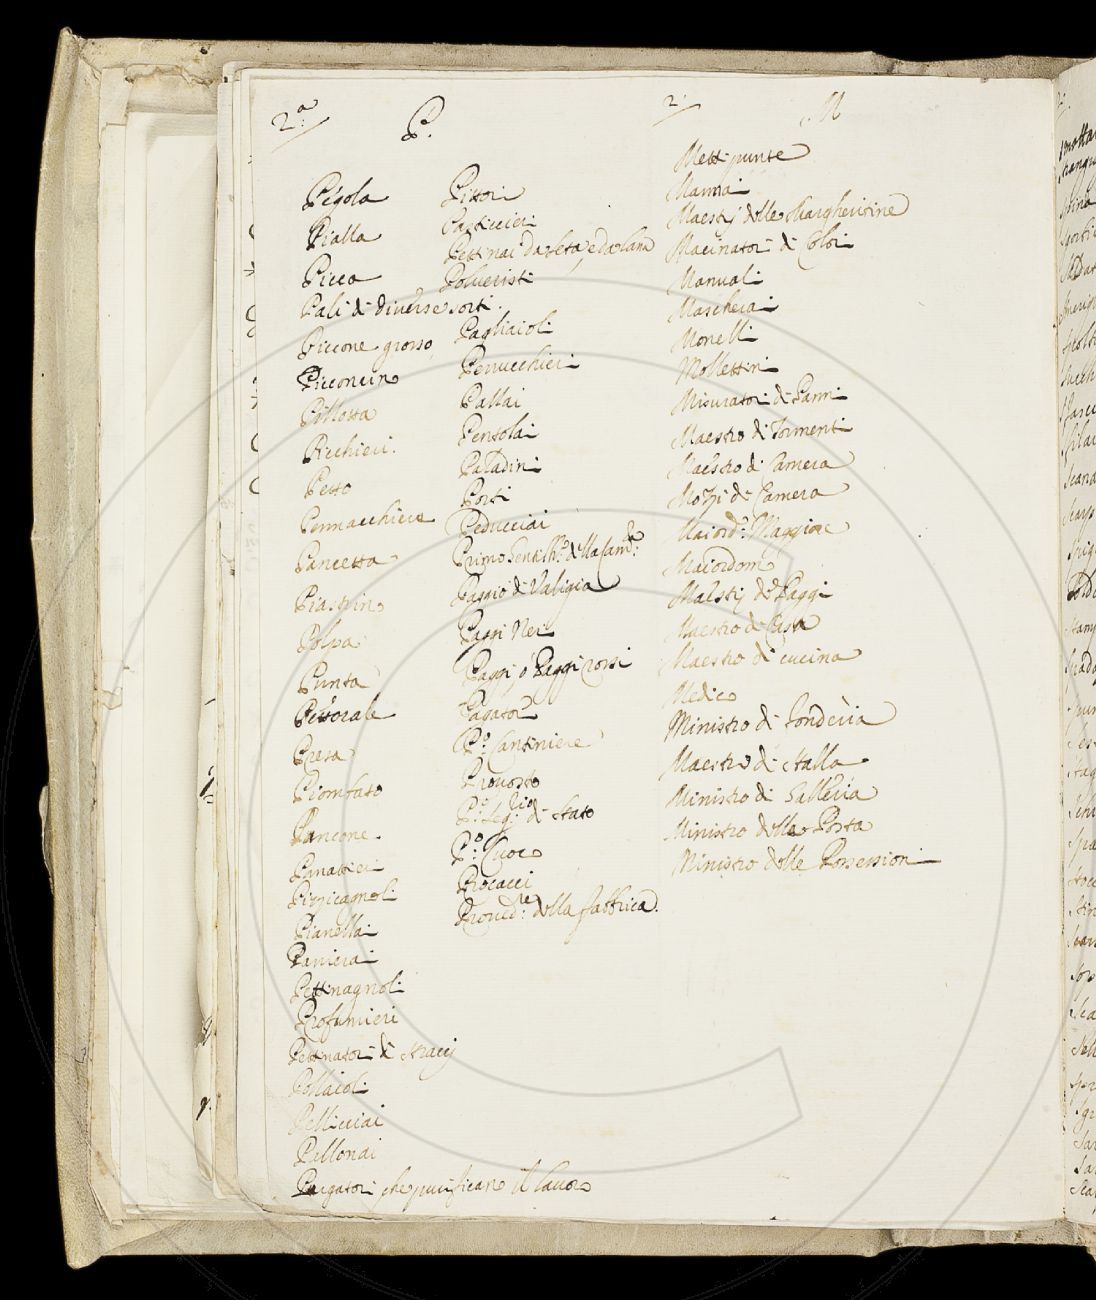 2.ª P.
Pegola
Pialla
Picca
Pali di diverse sorti.
Piccone grosso
Picconcino
Pillotta
Picchieri.
Petto
Pennacchiera
Pancetta
Piastrino
Polpa
Punta
Pettorale
Presa
Piombato
Pancone.
Panattieri
Pizzicagnoli
Pianellai
Panierai
Pettinagnoli
Profumieri
Pettinatori di stracci
Pollaioli
Pellicciai
Pellonai
Purgatori che purificano il lavoro
Pittori
Pasticcieri
Pettinai da seta, e da lana
Polveristi
Pagliaioli
Perucchieri
Pallai
Pentolai
Paladini
Porti
Peducciai
Primo Gentilh.º della Cam.ra
Paggio di Valigia
Paggi Neri
Paggi ò Paggi rossi
Pagatore
P.º Cantiniere
Provosto
P.º Seg.rio di Stato
P.º Cuoco
Procacci
Proued.re della fabbrica.
2. M
Metti punte
Mannai
Maestri delle Margheritine
Macinatori di Colori
Manuali
Mascherai
Monelli
Mollettini
Misuratori di Panni
Maestro di Tormenti
Maestro di Camera
Mozzi di Camera
Maiord.º Maggiore
Maiordomo
Maestri de Paggi
Maestro di Casa
Maestro di cucina
Medico
Ministro di fonderia
Maestro di stalla
Ministro di Galleria
Ministro della Posta
Ministro delle Possessioni